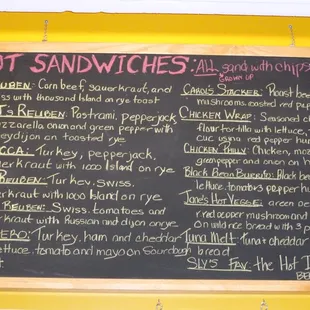 OT SANDWICHES: ALL sand. with chips
GROWN UP
UBEN: Corn beef, sauerkraut, and
ss with thousand Island on rye toast
T'S REUBEN: Pastrami, pepperjack
ozzarella onion and green pepper with
eydijon on toasted rye
CCA: Turkey, pepperjack,
erkraut with 1000 island on rye
REUBEN: Turkey, Swiss,
erkraut with 1000 Island on rye
REUBEN: Swiss, tomatoes and
rkraut with Russian and dijon on rye
ERO: Turkey, ham and cheddar
ettuce, tomato and mayo on Sourdough bread
CAROL'S STACKER: Roast beef
mushrooms, roasted red pep
CHICKEN WRAP: Seasoned c
flour tortilla with lettuce,
cue using red pepper hu
CHICKEN PHILLY: Chicken, moz
green pepper and onion on h
Black Bean Burrito: Black be
lettuce, tomato & pepper hu
Jane's Hot Veggie: green pe
red pepper mushroom and
on wild rice bread with 3 p
Tuna Melt: Tuna & cheddar
SLY'S FAV: the Hot I
BE